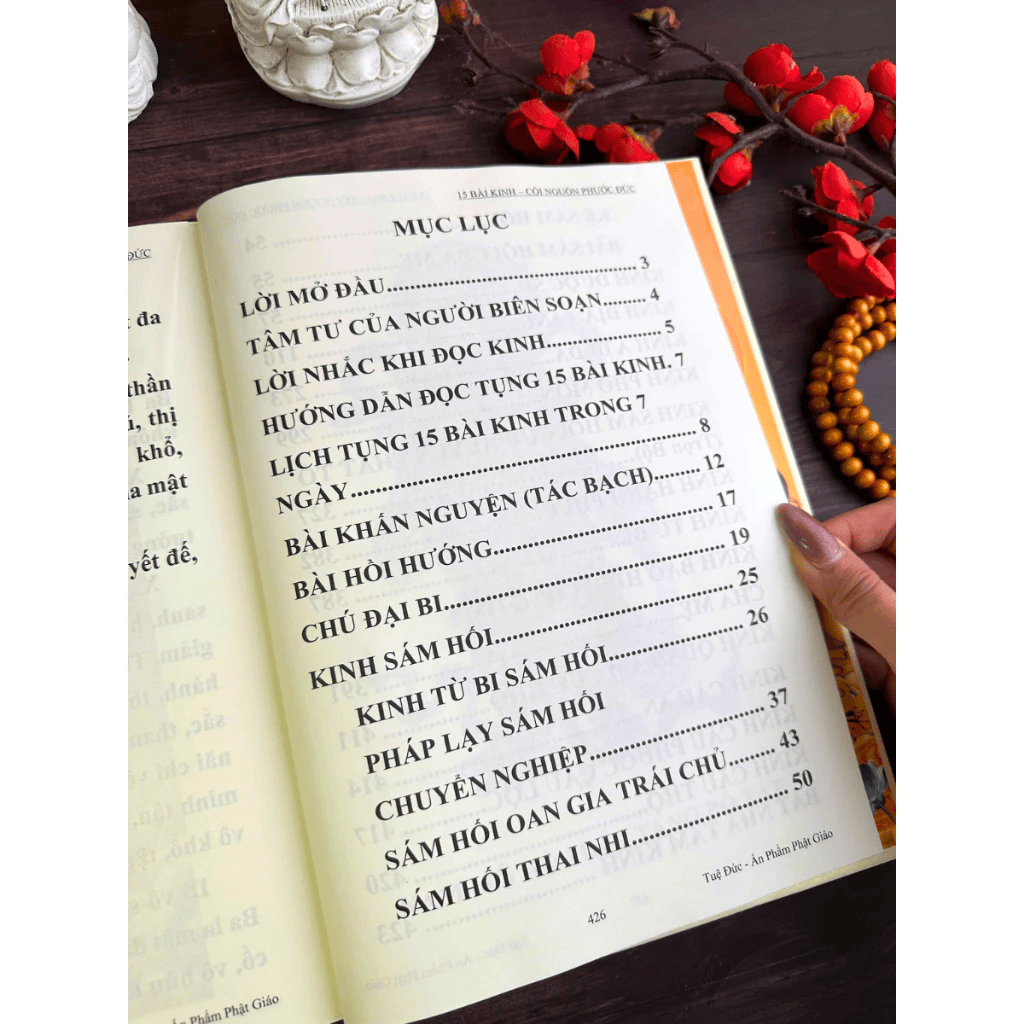 ĐỨC
đa
thần
thị
khổ,
mật
yết đế,
Ấn Phẩm Phật Giáo
15 BÀI KINH – CỘI NGUỒN PHƯỚC ĐỨC
MỤC LỤC
LỜI MỞ ĐẦU........................................ 3
TÂM TƯ CỦA NGƯỜI BIÊN SOẠN......... 4
LỜI NHẮC KHI ĐỌC KINH.................. 5
HƯỚNG DẪN ĐỌC TỤNG 15 BÀI KINH. 7
LỊCH TỤNG 15 BÀI KINH TRONG 7
NGÀY...................................................... 8
BÀI KHẤN NGUYỆN (TÁC BẠCH)......... 12
BÀI HỒI HƯỚNG................................ 17
CHÚ ĐẠI BI........................................... 19
KINH SÁM HỐI..................................... 25
KINH TỪ BI SÁM HỐI.................... 26
PHÁP LẠY SÁM HỐI
CHUYỂN NGHIỆP............................ 37
SÁM HỐI OAN GIA TRÁI CHỦ......... 43
SÁM HỐI THAI NHI......................... 50
Tuệ Đức - Ấn Phẩm Phật Giáo
426